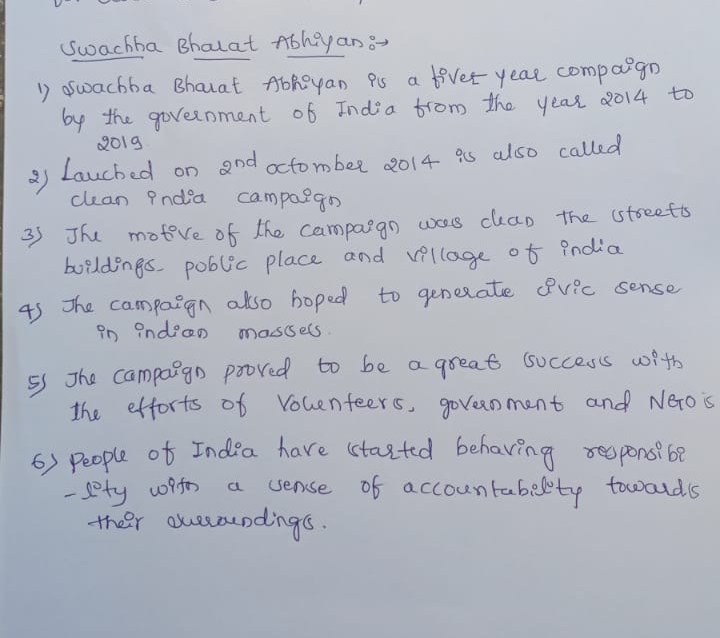 Swachha Bharat Abhiyan :→
1) Swachha Bharat Abhiyan is a fiver year compaign
by the government of India from the year 2014 to
2019
2) Lauched on 2nd octomber 2014 is also called
clean india campaign
3) The motive of the campaign was clean the streets
buildings. poblic place and village of india
4) The campaign also hoped to generate civic sense
in indian masses.
5) The campaign proved to be a great success with
the efforts of Volenteers, government and NGO's
6) People of India have started behaving responsibe
-lity with a sense of accountability towards
their surroundings.